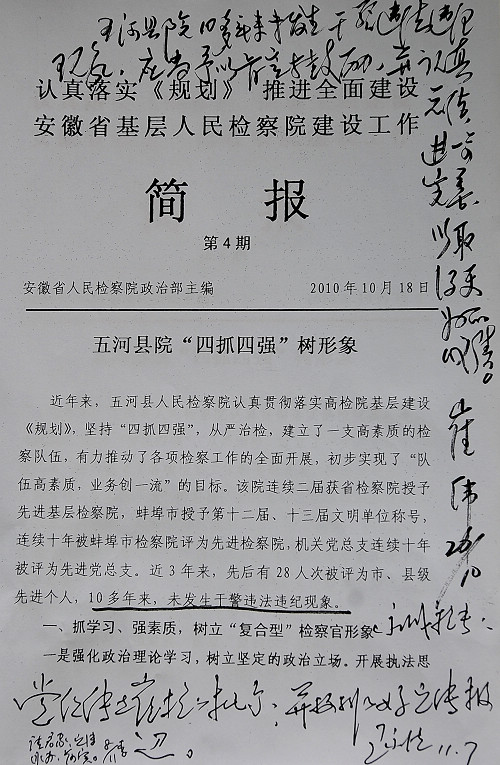 五河县院10多年来未发生干警违法违纪
现象，应当予以肯定和鼓励，并认真
总结，
进一步
完善
以取
得更
好的
成绩。
崔伟
26/10
认真落实《规划》 推进全面建设
安徽省基层人民检察院建设工作
简 报
第4期
安徽省人民检察院政治部主编 2010年10月18日
五河县院“四抓四强”树形象
近年来，五河县人民检察院认真贯彻落实高检院基层建设
《规划》，坚持“四抓四强”，从严治检，建立了一支高素质的检
察队伍，有力推动了各项检察工作的全面开展，初步实现了“队
伍高素质，业务创一流”的目标。该院连续二届获省检察院授予
先进基层检察院，蚌埠市授予第十二届、十三届文明单位称号，
连续十年被蚌埠市检察院评为先进检察院，机关党总支连续十年
被评为先进党总支。近3年来，先后有28人次被评为市、县级
先进个人，10多年来，未发生干警违法违纪现象。
一、抓学习、强素质，树立“复合型”检察官形象
一是强化政治理论学习，树立坚定的政治立场。开展执法思
11.7